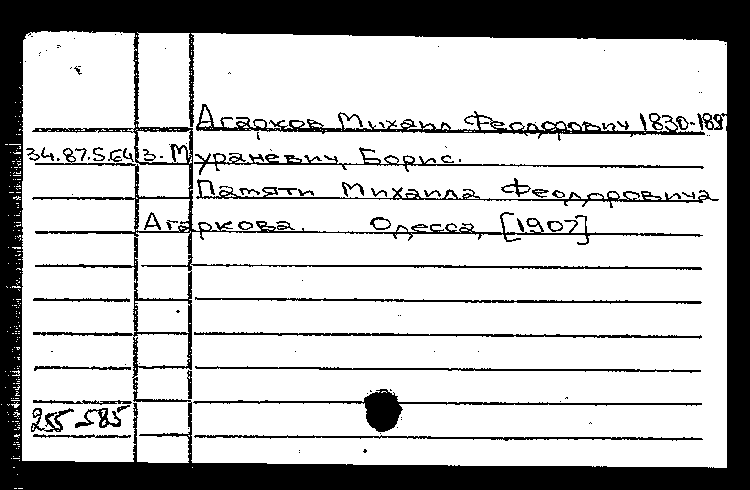 Агарков, Михаил Феодорович, 1830-189
34.87.5.64 З. Мураневич, Борис.
Памяти Михаила Феодоровича
Агаркова. Одесса, [1907]
255-585